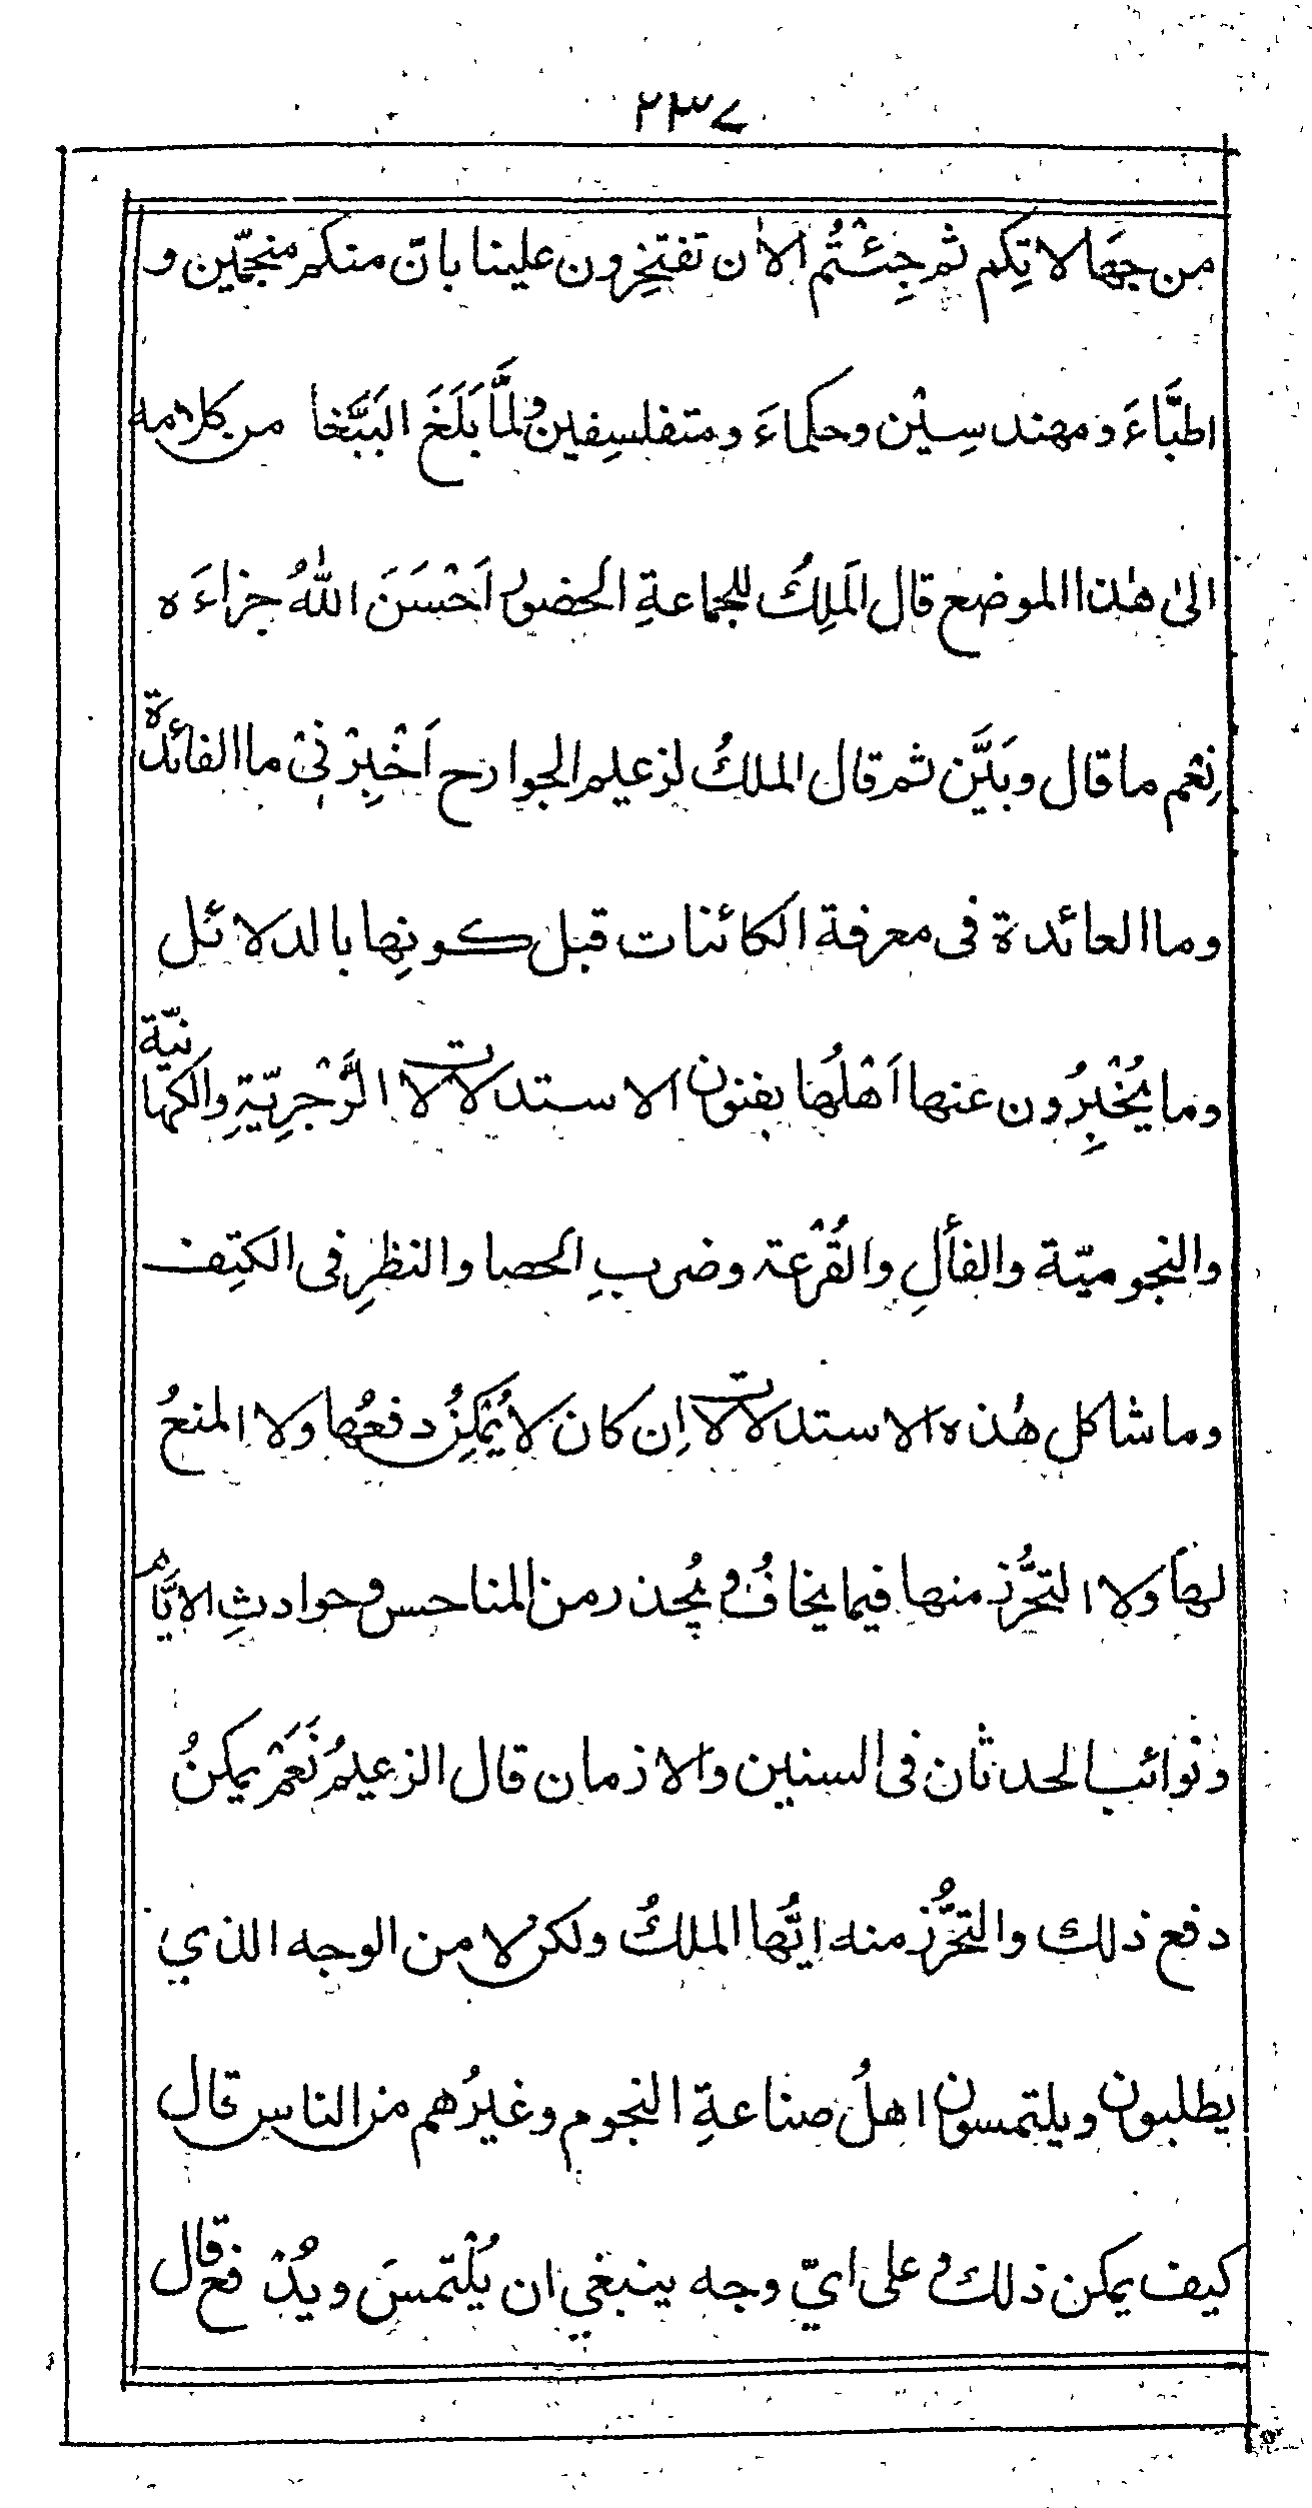 ٢٣٧
من جَهَالاتِكم ثم جِئْتُم الاٰن تفتخِرون علينا بانّ منكم منجّمين و
اطبَّاءَ ومهندسِيْن وحكماءَ ومتفلسِفين ولمَّا بَلَغَ البَبَّغا من كلامه
الىٰ هٰذا الموضع قال المَلِكُ للجماعةِ الحضورُ اَحْسَنَ اللّٰهُ جزاءَه
نِعْم ما قال وبَيَّن ثم قال الملكُ لزعيم الجوارح اَخْبِرْنِيْ ما الفائدة
وما العائدة فى معرفة الكائنات قبل كونِها بالدلائل
وما يُخْبِرُون عنها اَهْلُها بفنون الاستدلالات الزَّجْرِيّةِ والكهانيّة
والنجوميّة والفألِ والقُرْعة وضربِ الحصا والنظرِ فى الكتِف
وما شاكل هٰذه الاستدلالات اِن كان لا يُمْكِنُ دفعُها ولا المنعُ
لها ولا التحرُّز منها فيما يخافُ ويُحذر من المناحس وحوادثِ الايَّام
ونَوائب الحدثان فى السنين والازمان قال الزعيمُ نَعَمْ يمكنُ
دفع ذلك والتحرُّز منه ايُّها الملكُ ولكن لا من الوجه الذي
يطلبون ويلتمسون اهلُ صناعةِ النجوم وغيرُهم من الناس قال
كيف يمكن ذلك وعلى ايّ وجه ينبغي ان يُلْتمسَ ويُدْفع قال